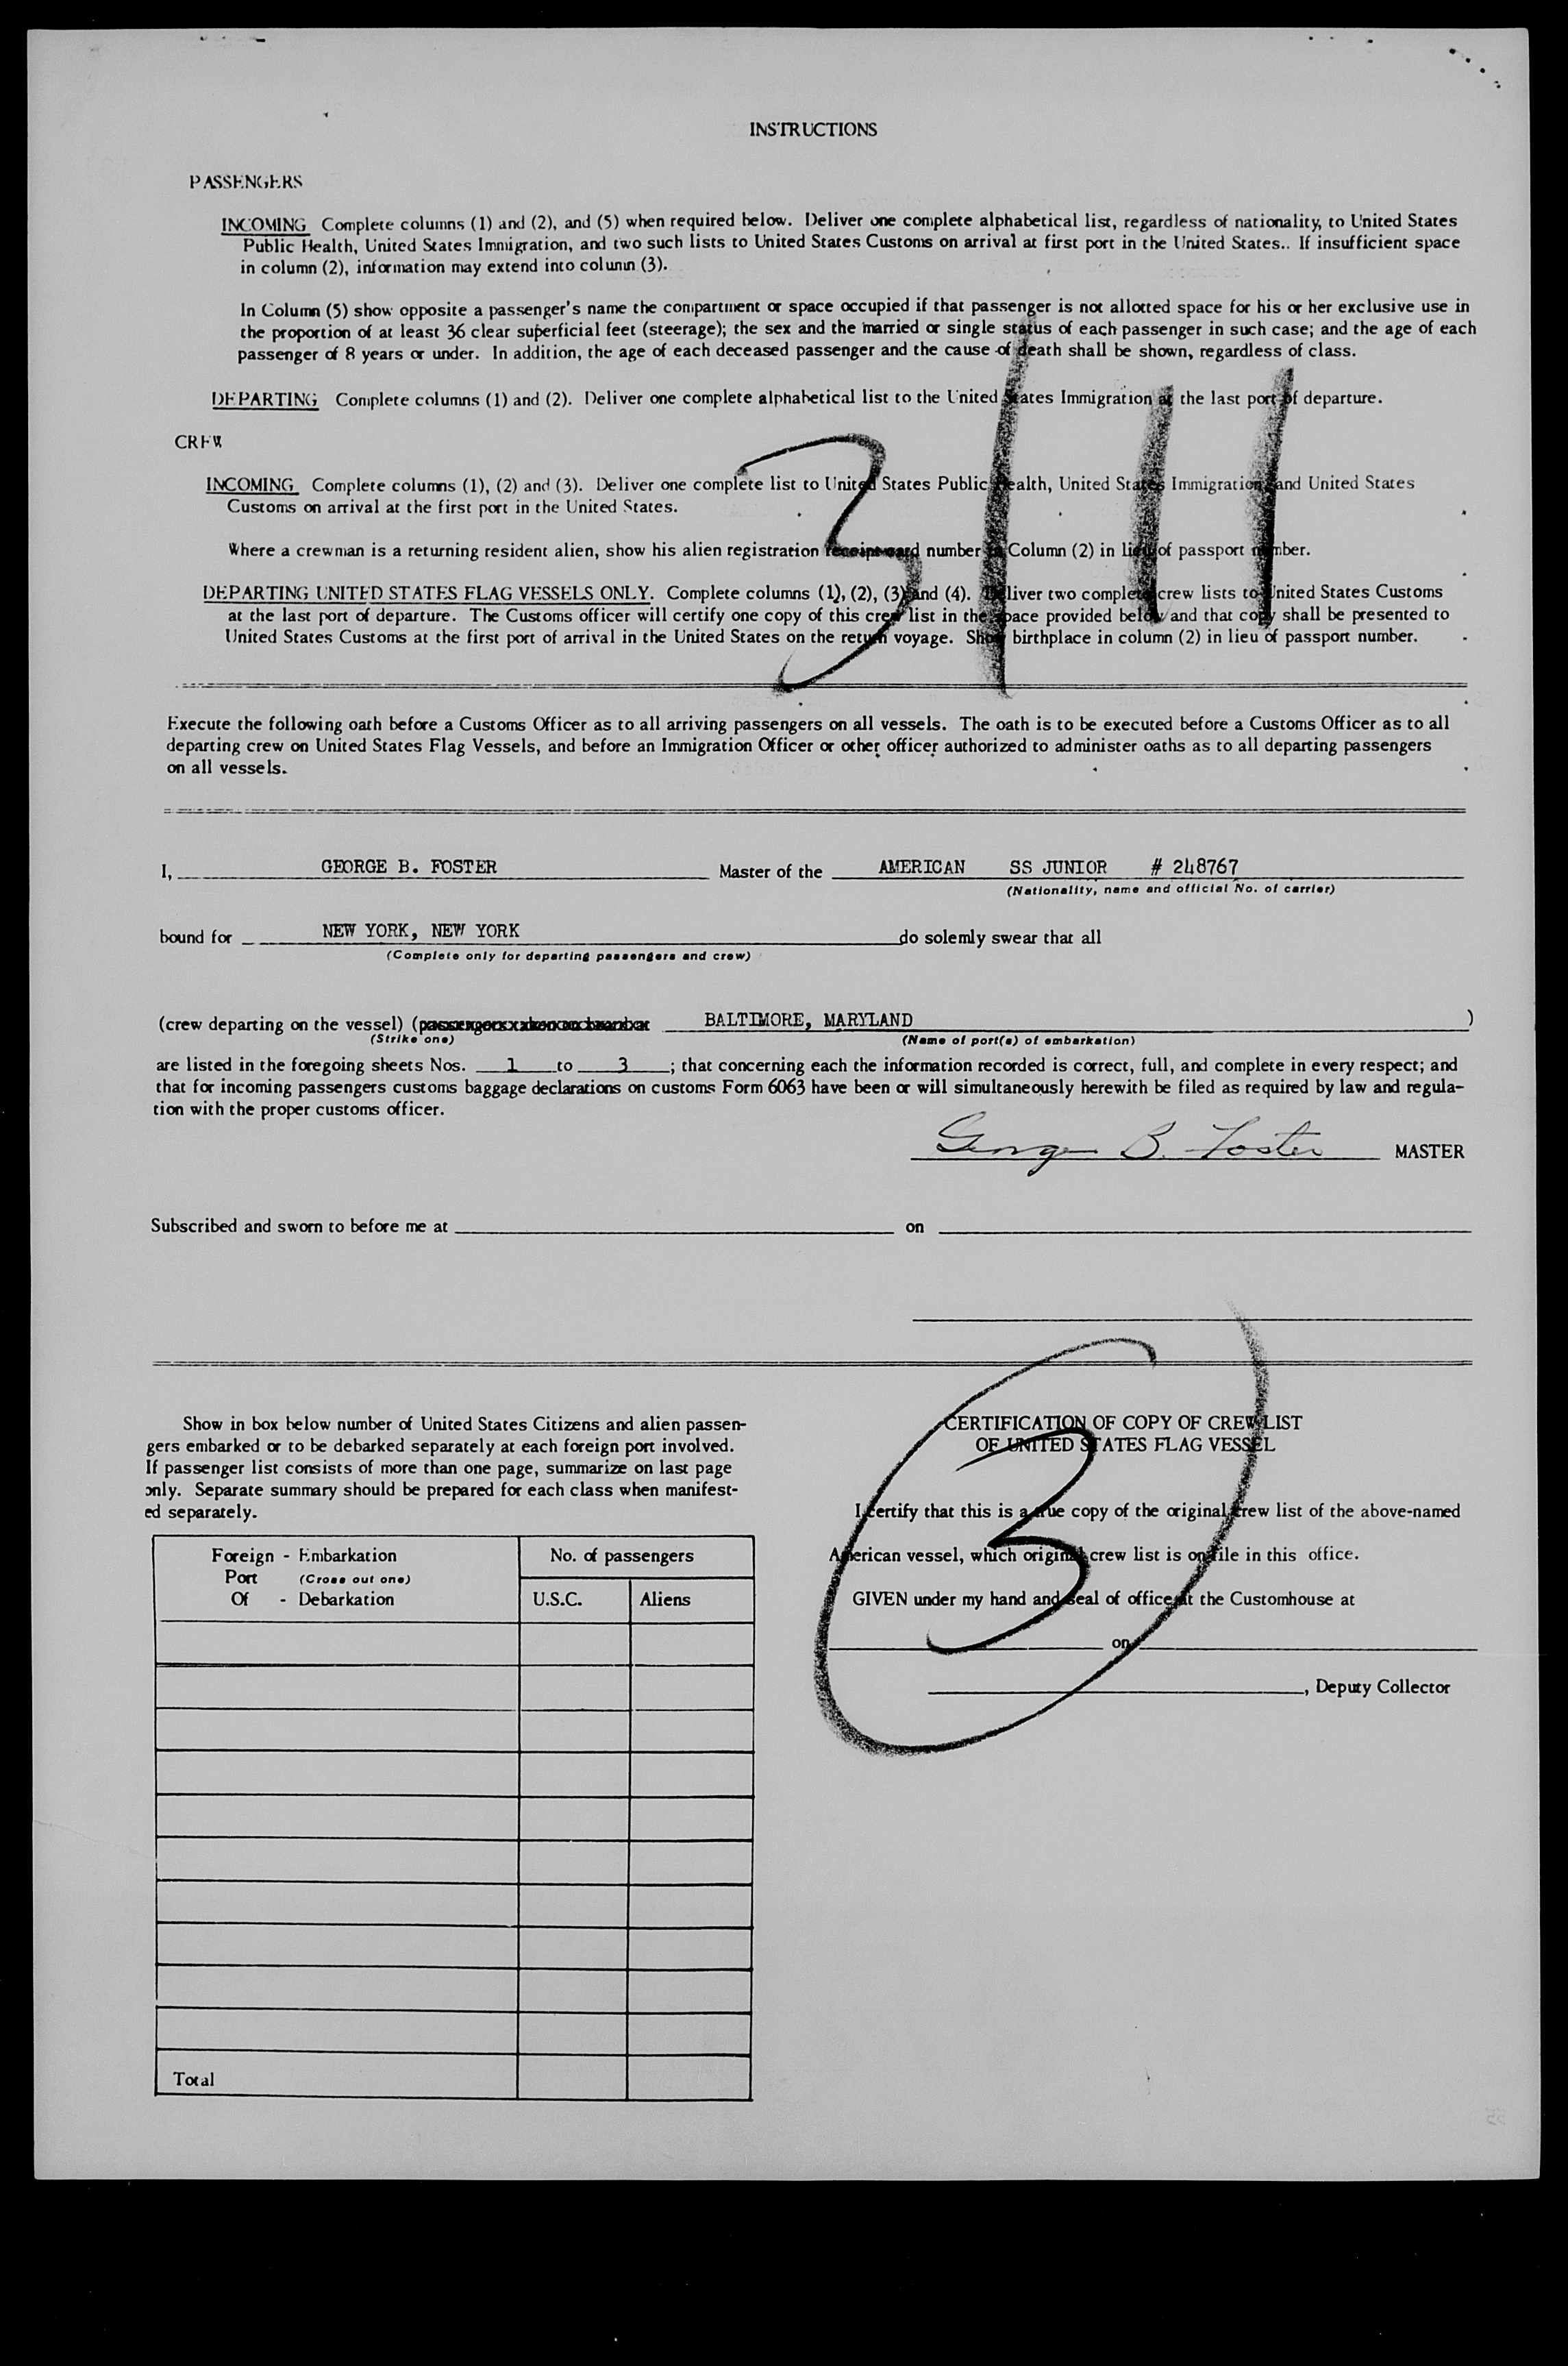 INSTRUCTIONS
PASSENGERS
INCOMING Complete columns (1) and (2), and (5) when required below. Deliver one complete alphabetical list, regardless of nationality, to United States
Public Health, United States Immigration, and two such lists to United States Customs on arrival at first port in the United States.. If insufficient space
in column (2), information may extend into column (3).
In Column (5) show opposite a passenger's name the compartment or space occupied if that passenger is not allotted space for his or her exclusive use in
the proportion of at least 36 clear superficial feet (steerage); the sex and the married or single status of each passenger in such case; and the age of each
passenger of 8 years or under. In addition, the age of each deceased passenger and the cause of death shall be shown, regardless of class.
DEPARTING Complete columns (1) and (2). Deliver one complete alphabetical list to the United States Immigration at the last port of departure.
CREW
INCOMING Complete columns (1), (2) and (3). Deliver one complete list to United States Public Health, United States Immigration and United States
Customs on arrival at the first port in the United States.
Where a crewman is a returning resident alien, show his alien registration receipt card number in Column (2) in lieu of passport number.
DEPARTING UNITED STATES FLAG VESSELS ONLY. Complete columns (1), (2), (3) and (4). Deliver two complete crew lists to United States Customs
at the last port of departure. The Customs officer will certify one copy of this crew list in the space provided below and that copy shall be presented to
United States Customs at the first port of arrival in the United States on the return voyage. Show birthplace in column (2) in lieu of passport number.
3/11
Execute the following oath before a Customs Officer as to all arriving passengers on all vessels. The oath is to be executed before a Customs Officer as to all
departing crew on United States Flag Vessels, and before an Immigration Officer or other officer authorized to administer oaths as to all departing passengers
on all vessels.
I, GEORGE B. FOSTER Master of the AMERICAN SS JUNIOR # 248767
(Nationality, name and official No. of carrier)
bound for NEW YORK, NEW YORK do solemly swear that all
(Complete only for departing passengers and crew)
(crew departing on the vessel) ( BALTIMORE, MARYLAND )
(Strike one) (Name of port(s) of embarkation)
are listed in the foregoing sheets Nos. 1 to 3 ; that concerning each the information recorded is correct, full, and complete in every respect; and
that for incoming passengers customs baggage declarations on customs Form 6063 have been or will simultaneously herewith be filed as required by law and regula-
tion with the proper customs officer.
George B. Foster MASTER
Subscribed and sworn to before me at on
Show in box below number of United States Citizens and alien passen-
gers embarked or to be debarked separately at each foreign port involved.
If passenger list consists of more than one page, summarize on last page
only. Separate summary should be prepared for each class when manifest-
ed separately.
Foreign - Embarkation No. of passengers
Port (Cross out one)
Of - Debarkation U.S.C. Aliens
Total
CERTIFICATION OF COPY OF CREW LIST
OF UNITED STATES FLAG VESSEL
I certify that this is a true copy of the original crew list of the above-named
American vessel, which original crew list is on file in this office.
GIVEN under my hand and seal of office at the Customhouse at
on
, Deputy Collector
3